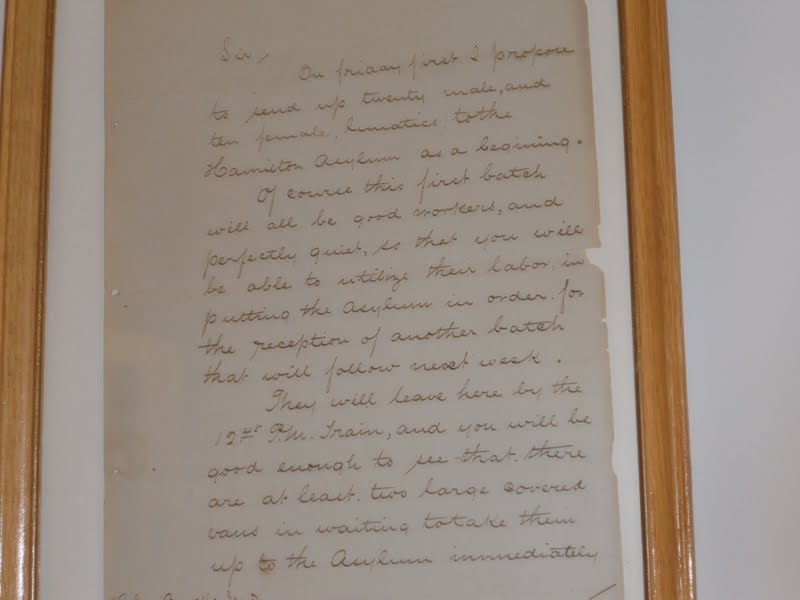 Sir,
On friday first I propose
to send up twenty male, and
ten female, lunatics, to the
Hamilton Asylum as a begining.
Of course this first batch
will all be good workers, and
perfectly quiet, so that you will
be able to utilize their labor, in
putting the Asylum in order, for
the reception of another batch
that will follow next week.
They will leave here by the
P.M. Train, and you will be
good enough to see that there
are at least, two large covered
vans in waiting to take them
up to the Asylum immediately